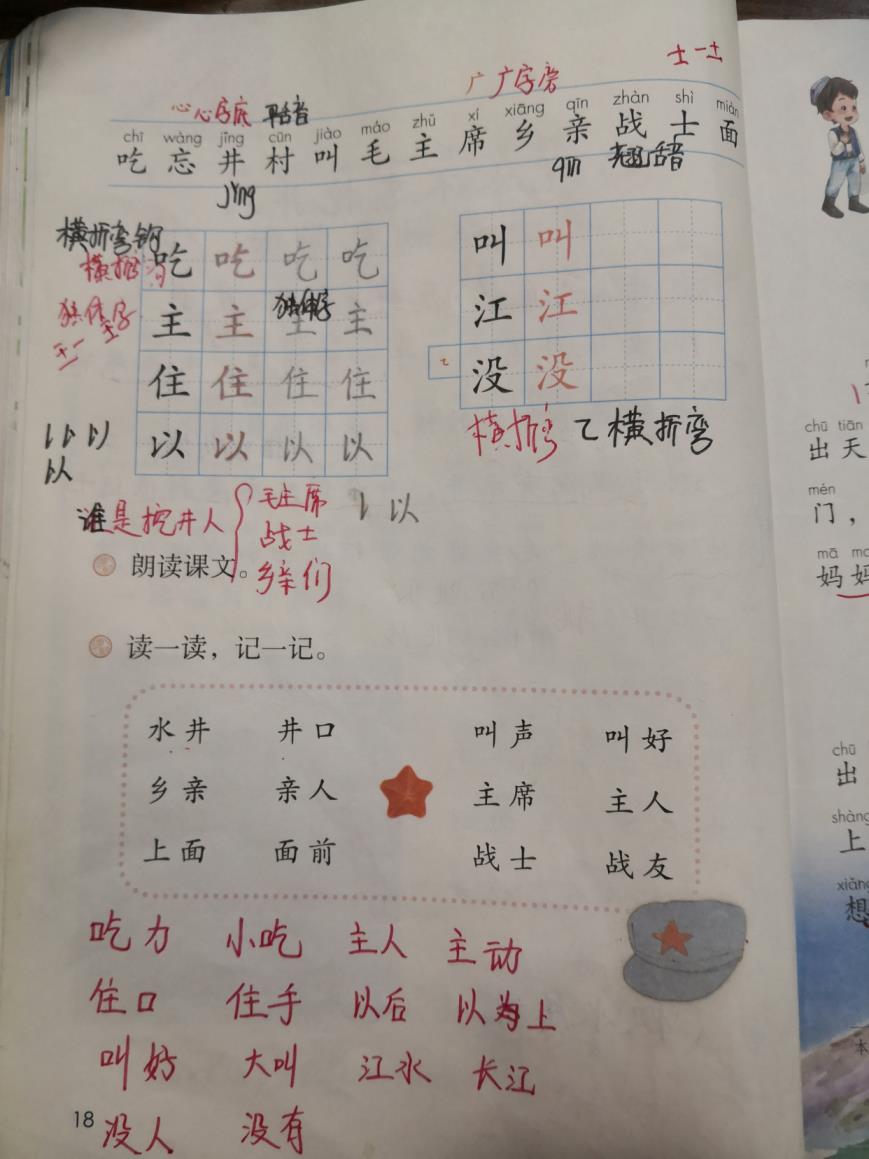 士一士
广 广字旁
心心字底 平舌音
chī wàng jǐng cūn jiào máo zhǔ xí xiāng qīn zhàn shì miàn
吃 忘 井 村 叫 毛 主 席 乡 亲 战 士 面
jǐng
qīn 翘舌音
横折弯钩
吃 吃 吃 吃
叫 叫
独体字
主 主 主 主
独体字
江 江
住 住 住 住
没 没
以 以 以 以
以
以
横折弯
乙横折弯
谁是挖井人
毛主席
战士
乡亲们
以
朗读课文。
读一读，记一记。
水井 井口 叫声 叫好
乡亲 亲人 主席 主人
上面 面前 战士 战友
吃力 小吃 主人 主动
住口 住手 以后 以为 上
叫好 大叫 江水 长江
没人 没有
18
chū tiān
出天
mén
门，
mā
妈妈
chū
出
shàng
上
xiǎng
想
本